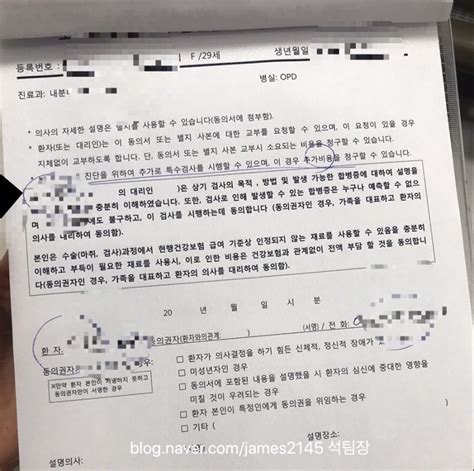 등록번호 :
F /29세
생년월일
진료과: 내분
병실: OPD
* 의사의 자세한 설명은 별지를 사용할 수 있습니다(동의서에 첨부함).
* 환자(또는 대리인)는 이 동의서 또는 별지 사본에 대한 교부를 요청할 수 있으며, 이 요청이 있을 경우
지체없이 교부하도록 합니다. 단, 동의서 또는 별지 사본 교부시 소요되는 비용을 청구할 수 있습니다.
진단을 위하여 추가로 특수검사를 시행할 수 있으며, 이 경우 추가비용을 청구할 수 있습니다.
의 대리인 )은 상기 검사의 목적, 방법 및 발생 가능한 합병증에 대하여 설명을
충분히 이해하였습니다. 또한, 검사로 인해 발생할 수 있는 합병증은 누구나 예측할 수 없으
에도 불구하고, 이 검사를 시행하는데 동의합니다 (동의권자인 경우, 가족을 대표하고 환자의
의사를 대리하여 동의함).
본인은 수술(마취, 검사)과정에서 현행건강보험 급여 기준상 인정되지 않는 재료를 사용할 수 있음을 충분히
이해하고 부득이 필요한 재료를 사용시, 이로 인한 비용은 건강보험과 관계없이 전액 부담 할 것을 동의합니
다(동의권자인 경우, 가족을 대표하고 환자의 의사를 대리하여 동의함).
20 년 월 일 시 분
환 자
동의권자(환자와의관계: ) (서명) / 전 화:
동의권자 경우:
※만약 환자 본인이 서명하지 못하고
동의권자만이 서명한 경우
□ 환자가 의사결정을 하기 힘든 신체적, 정신적 장애가
□ 미성년자인 경우
□ 동의서에 포함된 내용을 설명했을 시 환자의 심신에 중대한 영향을
미칠 것이 우려되는 경우
□ 환자 본인이 특정인에게 동의권을 위임하는 경우
□ 기타 (
설명의사:
설명장소:
blog.naver.com/james2145 석팀장